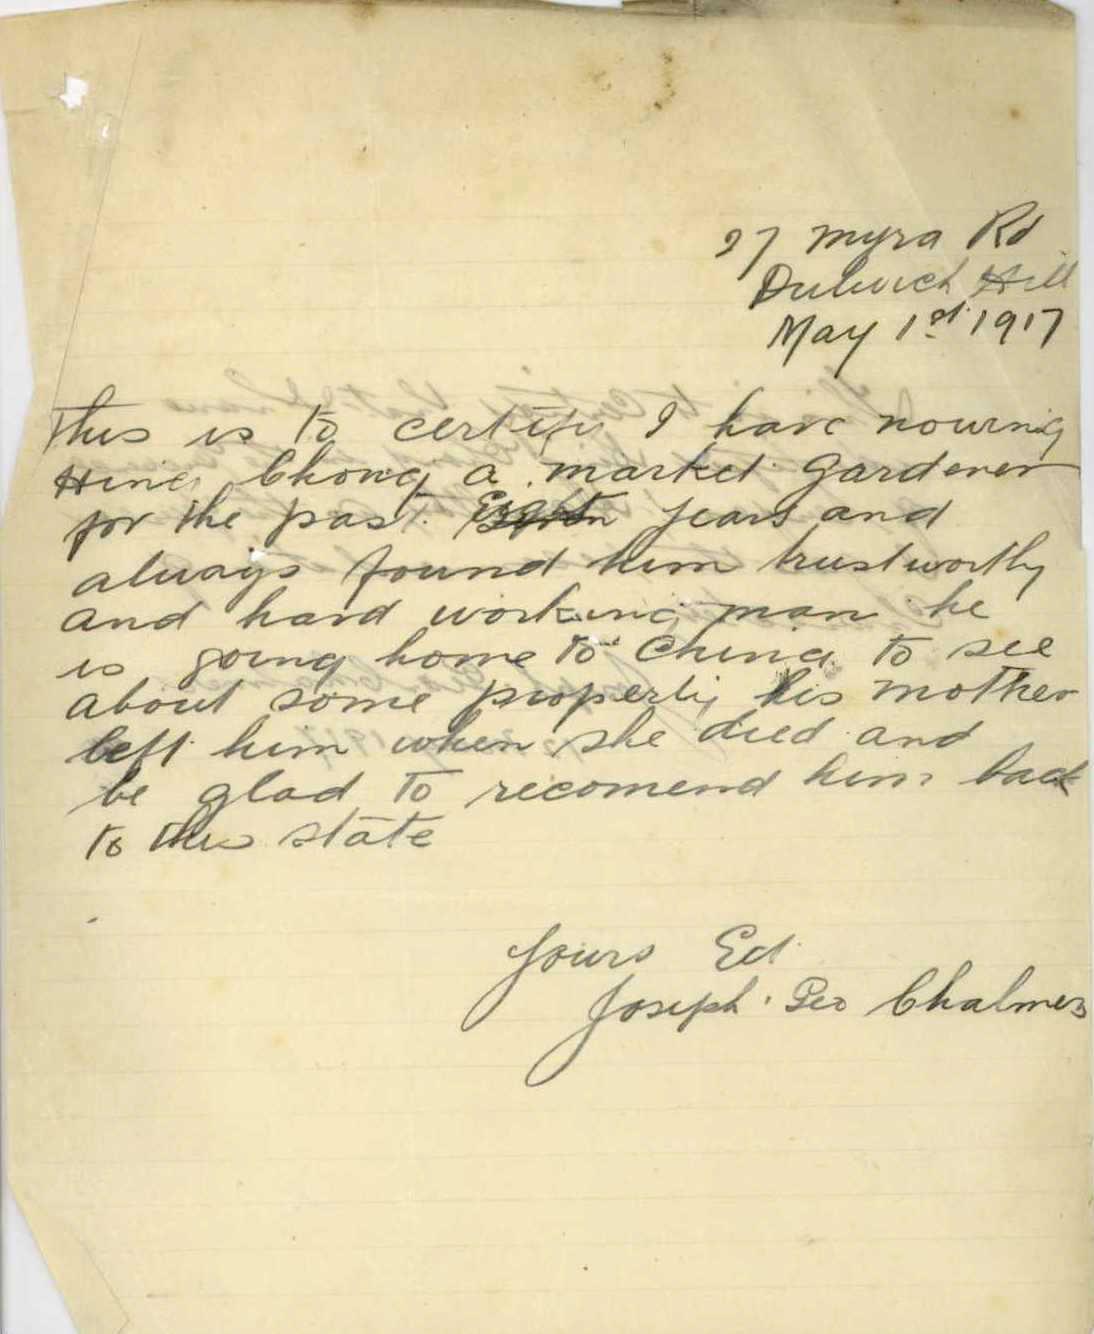 27 Myra Rd
Dulwich Hill
May 1st 1917
This is to certify I have nowing
Hing Chong a market gardener
for the past Eight years and
always found him trustworthy
and hard working man he
is going home to China to see
about some property his mother
left him when she died and
be glad to recomend him back
to this state
Yours Ed
Joseph Geo Chalmers